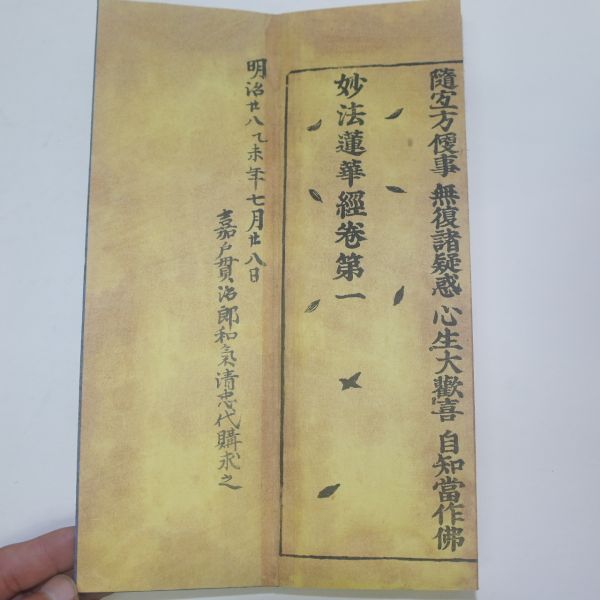 隨冝方便事 無復諸疑惑 心生大歡喜 自知當作佛
妙法蓮華經卷第一
明治廿八乙未年七月廿八日
嘉戸貫治郎和氣清忠代購求之